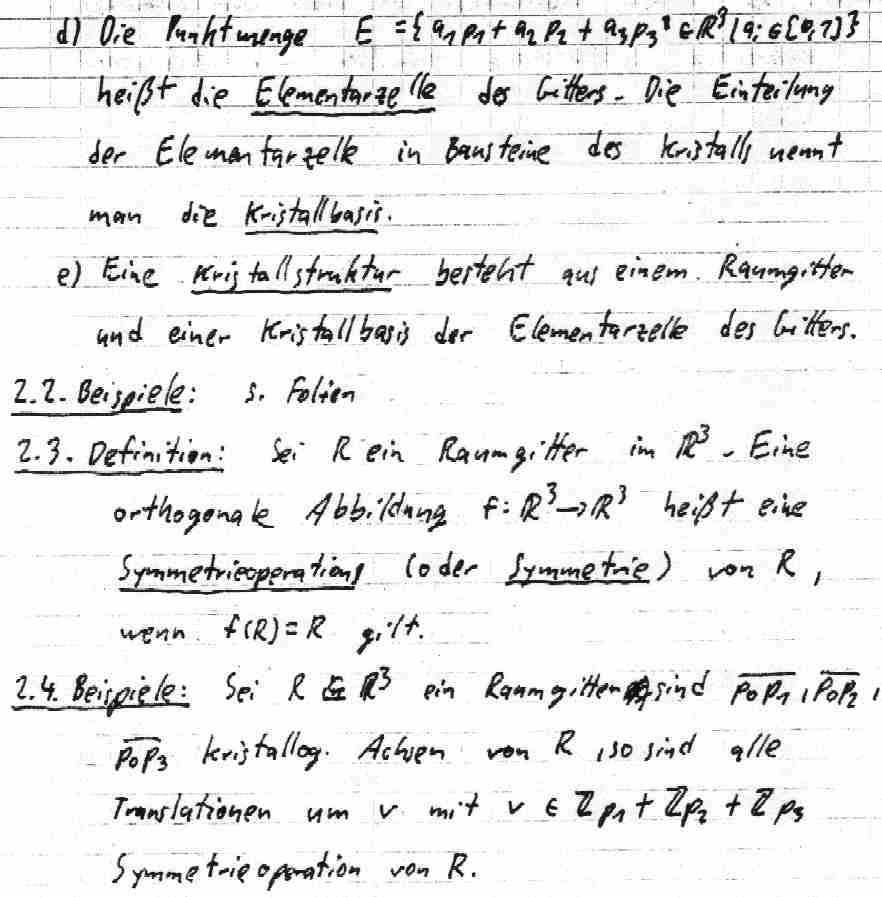 d) Die Punktmenge E = { a₁p₁ + a₂p₂ + a₃p₃ ∈ ℝ³ | aᵢ ∈ [0,1] }
heißt die Elementarzelle des Gitters. Die Einteilung
der Elementarzelle in Bausteine des Kristalls nennt
man die Kristallbasis.
e) Eine Kristallstruktur besteht aus einem Raumgitter
und einer Kristallbasis der Elementarzelle des Gitters.
2.2. Beispiele: s. Folien
2.3. Definition: Sei R ein Raumgitter im ℝ³. Eine
orthogonale Abbildung f: ℝ³→ℝ³ heißt eine
Symmetrieoperation (oder Symmetrie) von R,
wenn f(R) = R gilt.
2.4. Beispiele: Sei R ℝ³ ein Raumgitter sind p₀p₁, p₀p₂,
p₀p₃ kristallog. Achsen von R, so sind alle
Translationen um v mit v ∈ ℤp₁ + ℤp₂ + ℤp₃
Symmetrieoperation von R.